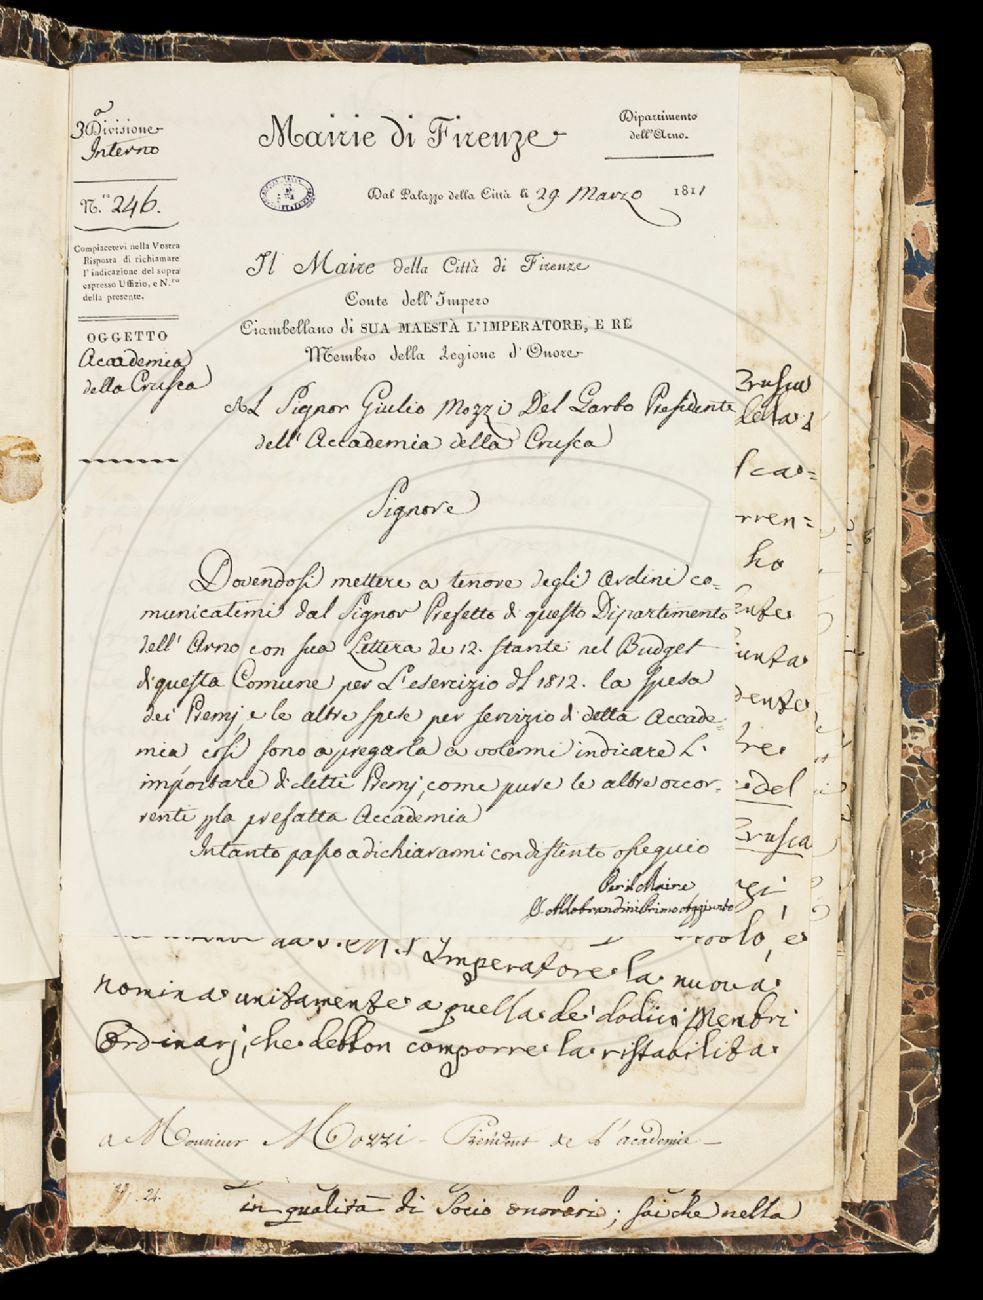 3.a Divisione
Interno
N.ro 246.
Compiacetevi nella Vostra
Risposta di richiamare
l'indicazione del sopra
espresso Uffizio, e N.ro
della presente.
OGGETTO
Accademia
della Crusca
Mairie di Firenze
Dipartimento
dell'Arno.
Dal Palazzo della Città li 29 Marzo 1811
Il Maire della Città di Firenze
Conte dell'Impero
Ciambellano di SUA MAESTÀ L'IMPERATORE, E RE
Membro della Legione d'Onore
Al Signor Giulio Mozzi Del Garbo Presidente
dell'Accademia della Crusca
Signore
Dovendosi mettere a tenore degli Ordini co-
municatimi dal Signor Prefetto di questo Dipartimento
dell'Arno con sua Lettera de 12. stante nel Budget
di questa Comune per L'esercizio del 1812. la spesa
dei Premj, e le altre spese per servizio di detta Accade-
mia, così sono a pregarla a volermi indicare L'
importare di detti Premj, come pure le altre occor-
renti p la prefatta Accademia
Intanto passo a dichiararmi con distinto ossequio
Per il Maire
Aldobrandini Primo Aggiunto
Crusca
sca=
rren=
ho
unta
dente
del
Crusca
Imperatore la nuova
nomina unitamente a quella de' dodici Membri
Ordinarj, che debbon comporre la ristabilita
a Monsieur Mozzi - Président de l'academie -
in qualità di Socio onorario; sai che nella